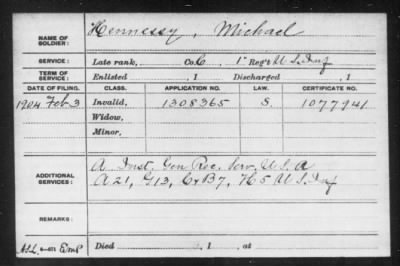 NAME OF SOLDIER: Hennessy, Michael
SERVICE: Late rank, Co. C, 1" Reg't U.S. Inf
TERM OF SERVICE: Enlisted , 1 Discharged , 1
DATE OF FILING. CLASS. APPLICATION NO. LAW. CERTIFICATE NO.
1904 Feb 3 Invalid, 1308365 S. 1077941
Widow,
Minor,
ADDITIONAL SERVICES: A Inst. Gen Rec. Serv. U.S.A
A 21, G 13, C & B 7, H 5 U.S. Inf
REMARKS:
Died , 1 , at